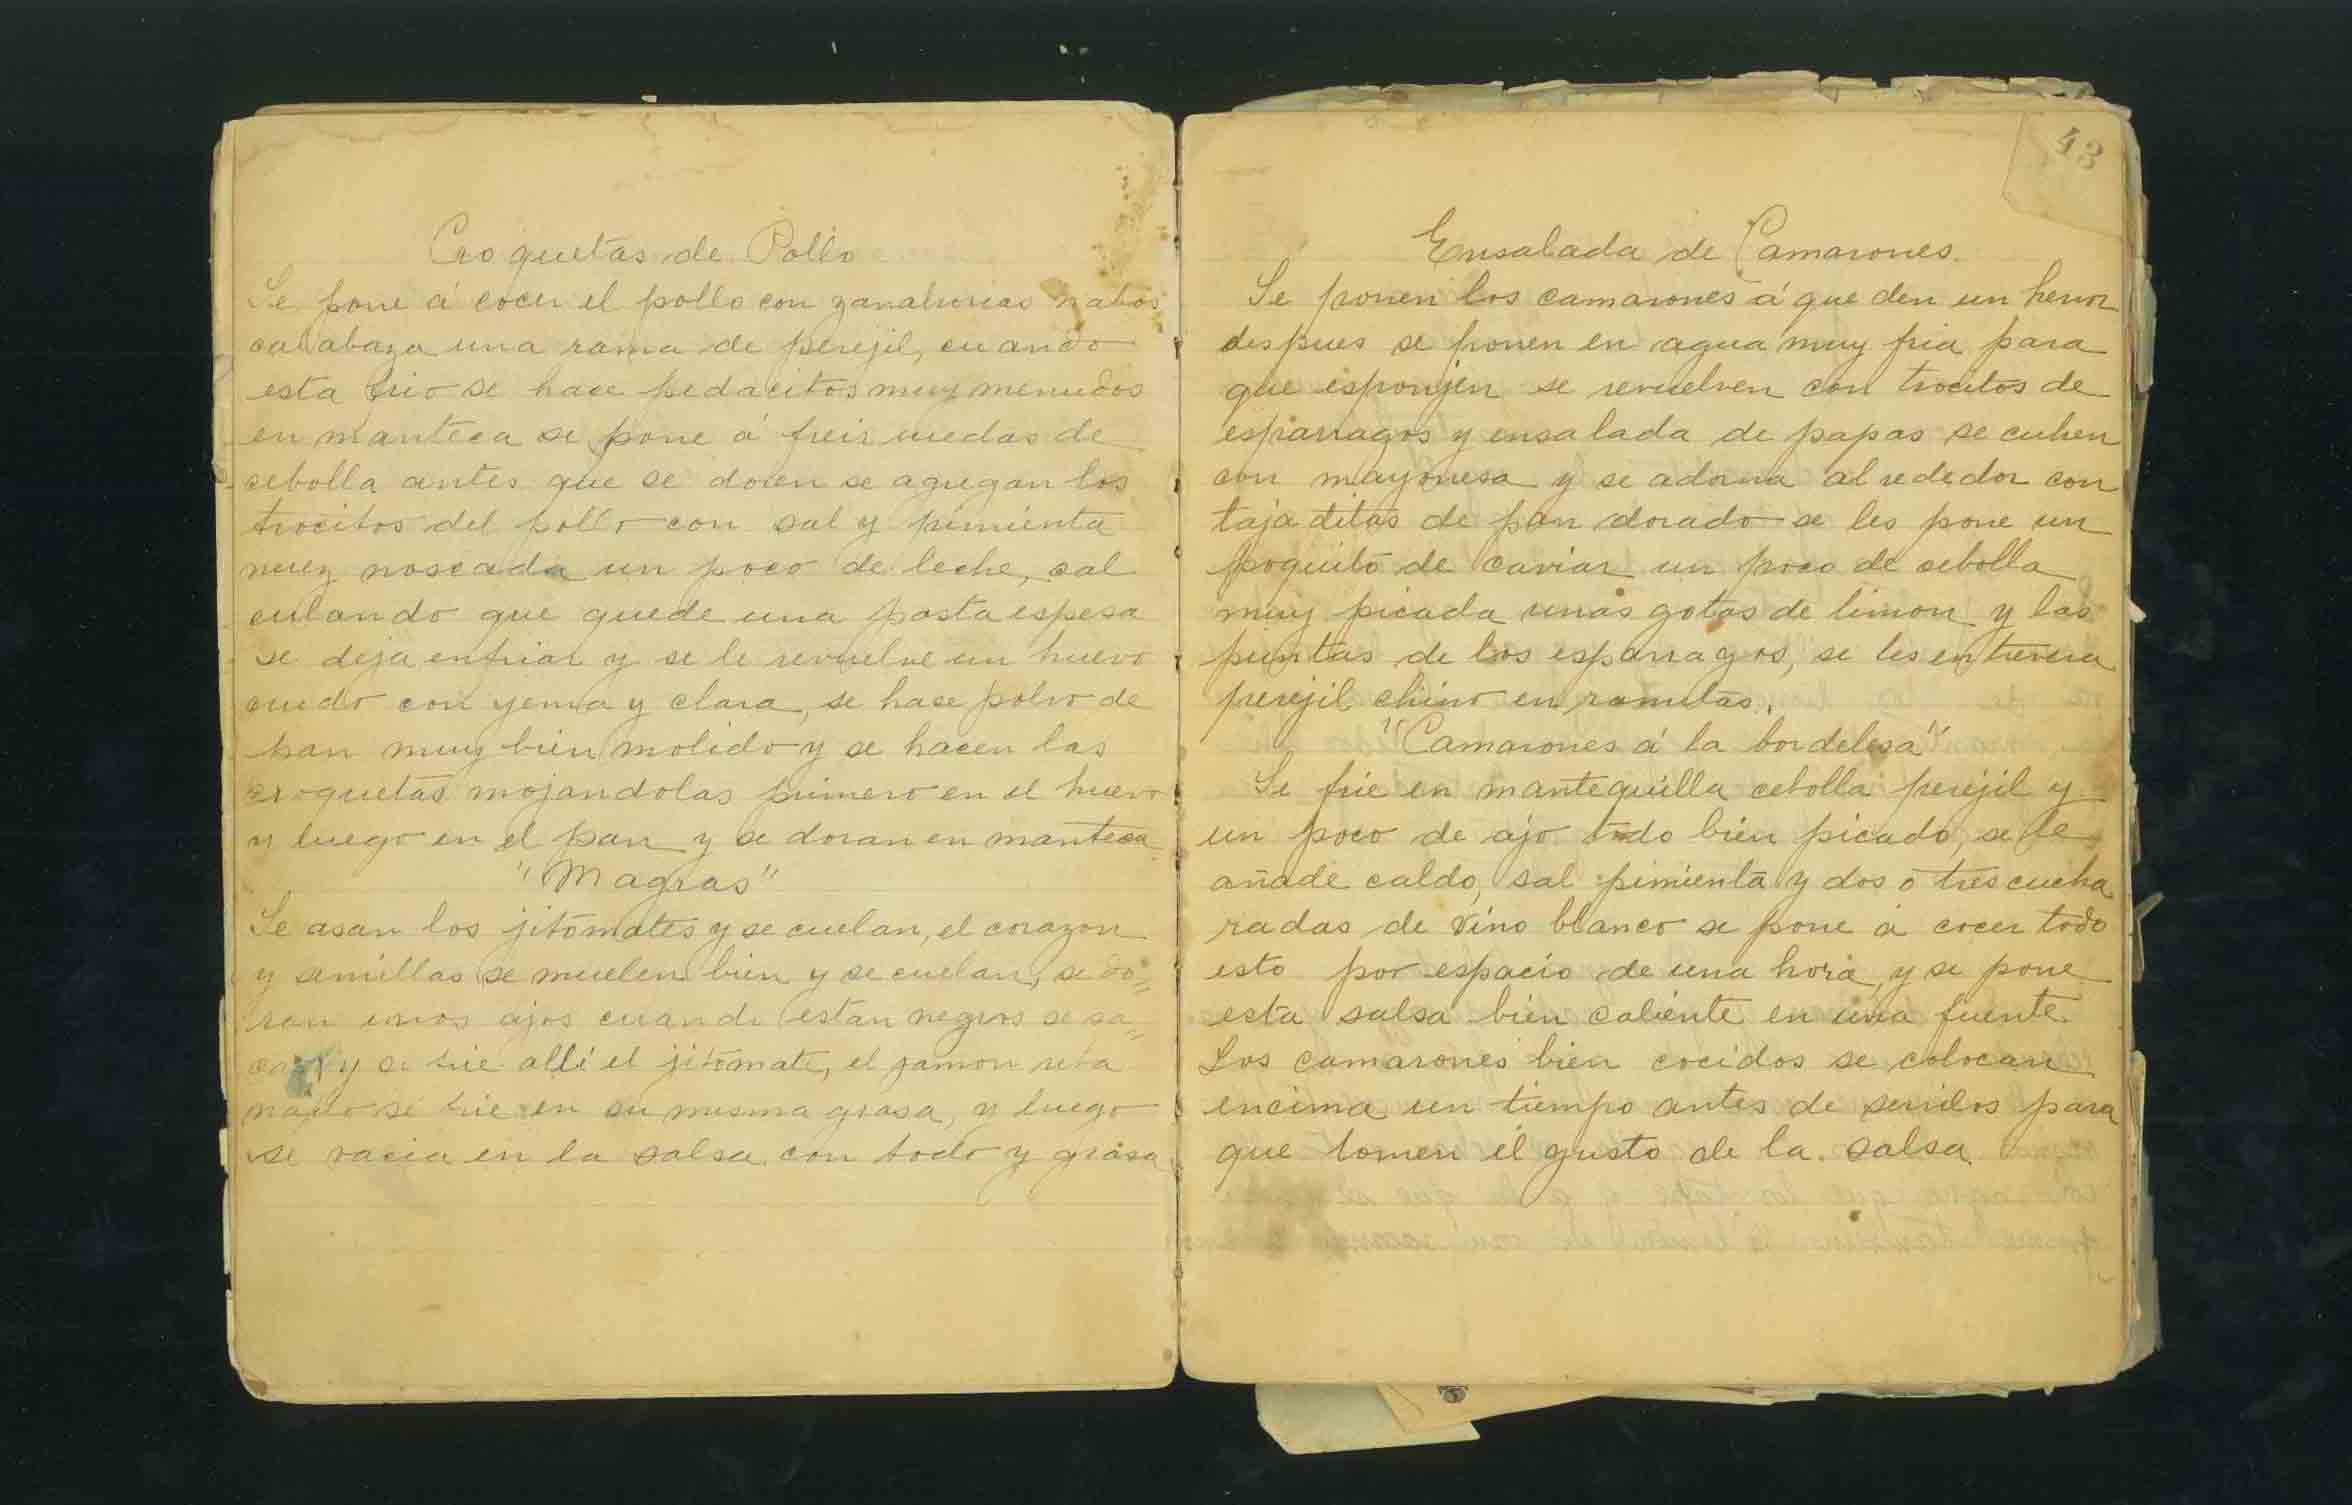 Croquetas de Pollo
Se pone á cocer el pollo con zanahorias nabos
calabaza una rama de perejil, cuando
esta frio se hace pedacitos muy menudos
en manteca se pone á freir ruedas de
sebolla antes que se doren se agregan los
trocitos del pollo con sal y pimienta
nuez noscada un poco de leche, cal
culando que quede una pasta espesa
se deja enfriar y se le revuelve un huevo
crudo con yema y clara, se hace polvo de
pan muy bien molido y se hacen las
croquetas mojandolas primero en el huevo
y luego en el pan y se doran en manteca
"Magras"
Se asan los jitomates y se cuelan, el corazon
y semillas se muelen bien y se cuelan, se do=
ran unos ajos cuando estan negros se sa=
can y se frie alli el jitomate, el jamon reba
nado se frie en su misma grasa, y luego
se vacia en la salsa con todo y grasa
43
Ensalada de Camarones.
Se ponen los camarones á que den un hervor
despues se ponen en agua muy fria para
que esponjen se revuelven con trocitos de
esparragos y ensalada de papas se cubren
con mayonesa y se adorna al rededor con
tajaditas de pan dorado se les pone un
poquito de caviar un poco de sebolla
muy picada unas gotas de limon y las
puntas de los esparragos, se les entrevera
perejil chino en ramitas.
"Camarones á la bordelesa"
Se frie en mantequilla cebolla perejil y
un poco de ajo todo bien picado, se le
añade caldo, sal pimienta y dos ó tres cucha
radas de vino blanco se pone á cocer todo
esto por espacio de una hora, y se pone
esta salsa bien caliente en una fuente.
Los camarones bien cocidos se colocan
encima un tiempo antes de servilos para
que tomen el gusto de la salsa